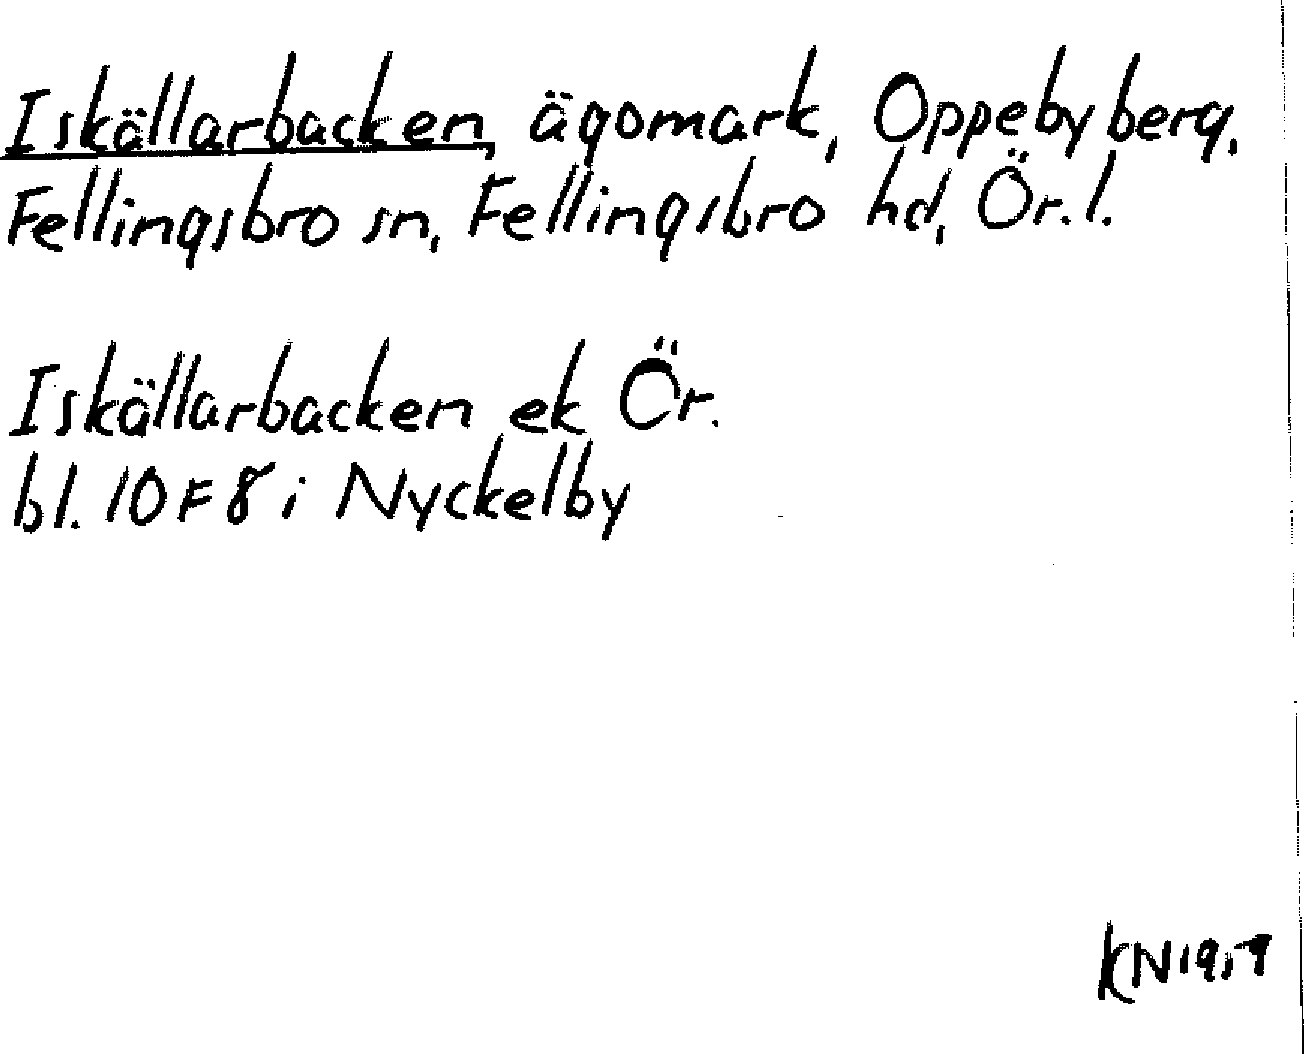 Iskällarbacken, ägomark, Oppebyberg,
Fellingsbro sn, Fellingsbro hd, Ör. l.
Iskällarbacken ek Ör.
bl. 10F8 i Nyckelby